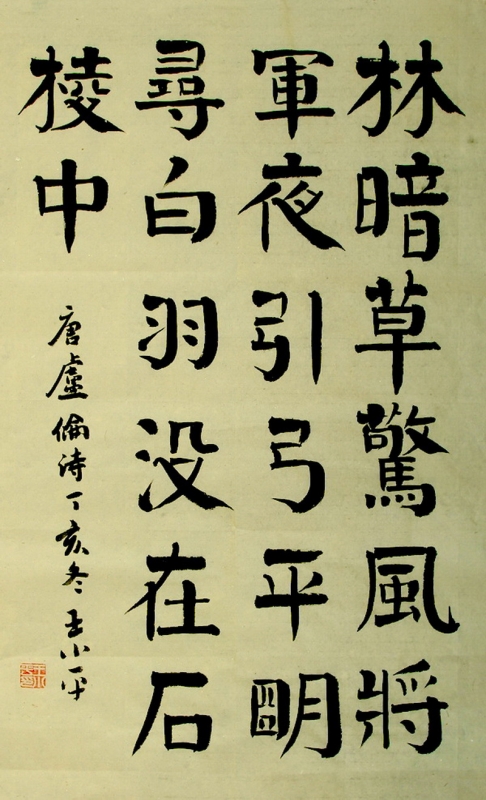 林暗草驚風將
軍夜引弓平明
尋白羽没在石
棱中
唐盧倫詩丁亥冬王小平